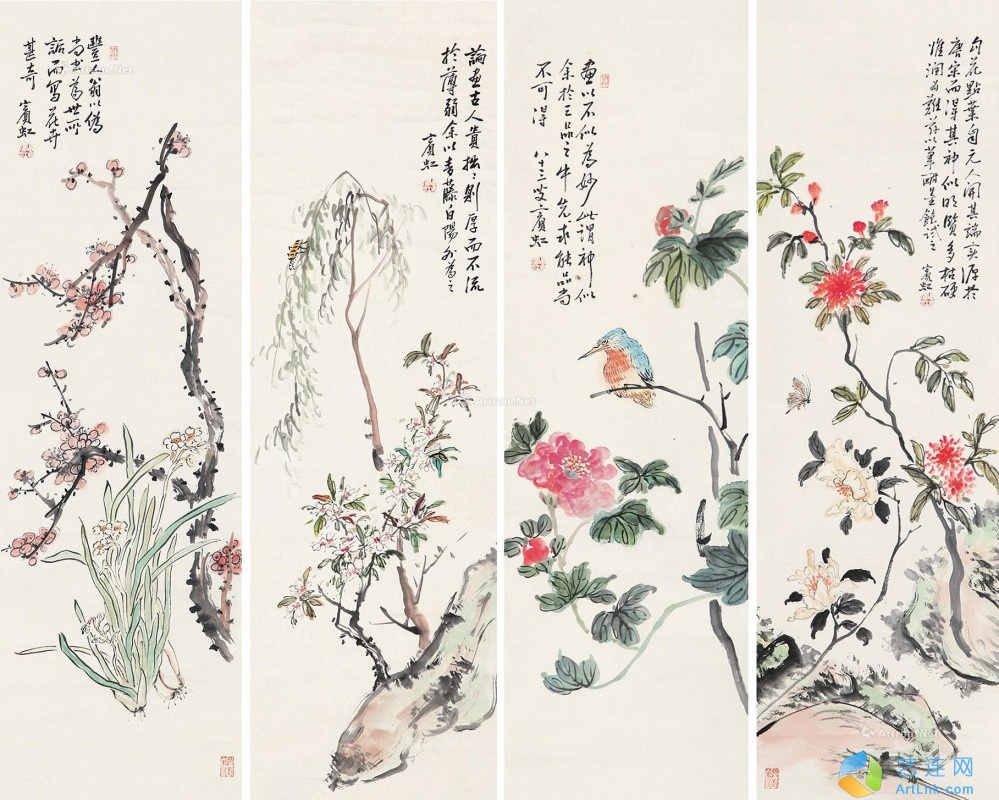 勾花點葉自元人開其端實源於
唐宋而得其神似明賢多枯硬
惟潤為難茲以試之
賓虹
畫以不似為妙此謂神似
余於三品之中先求能品尚
不可得 八十三叟賓虹
論畫古人貴拙〻則厚而不流
於薄弱余以青藤白陽為之
賓虹
豐人翁以僞
尚書為世所
詬而寫花卉
甚奇 賓虹
Artron.Net
Artron.Net
Artron.Net
艺连网
ArtLnk.com